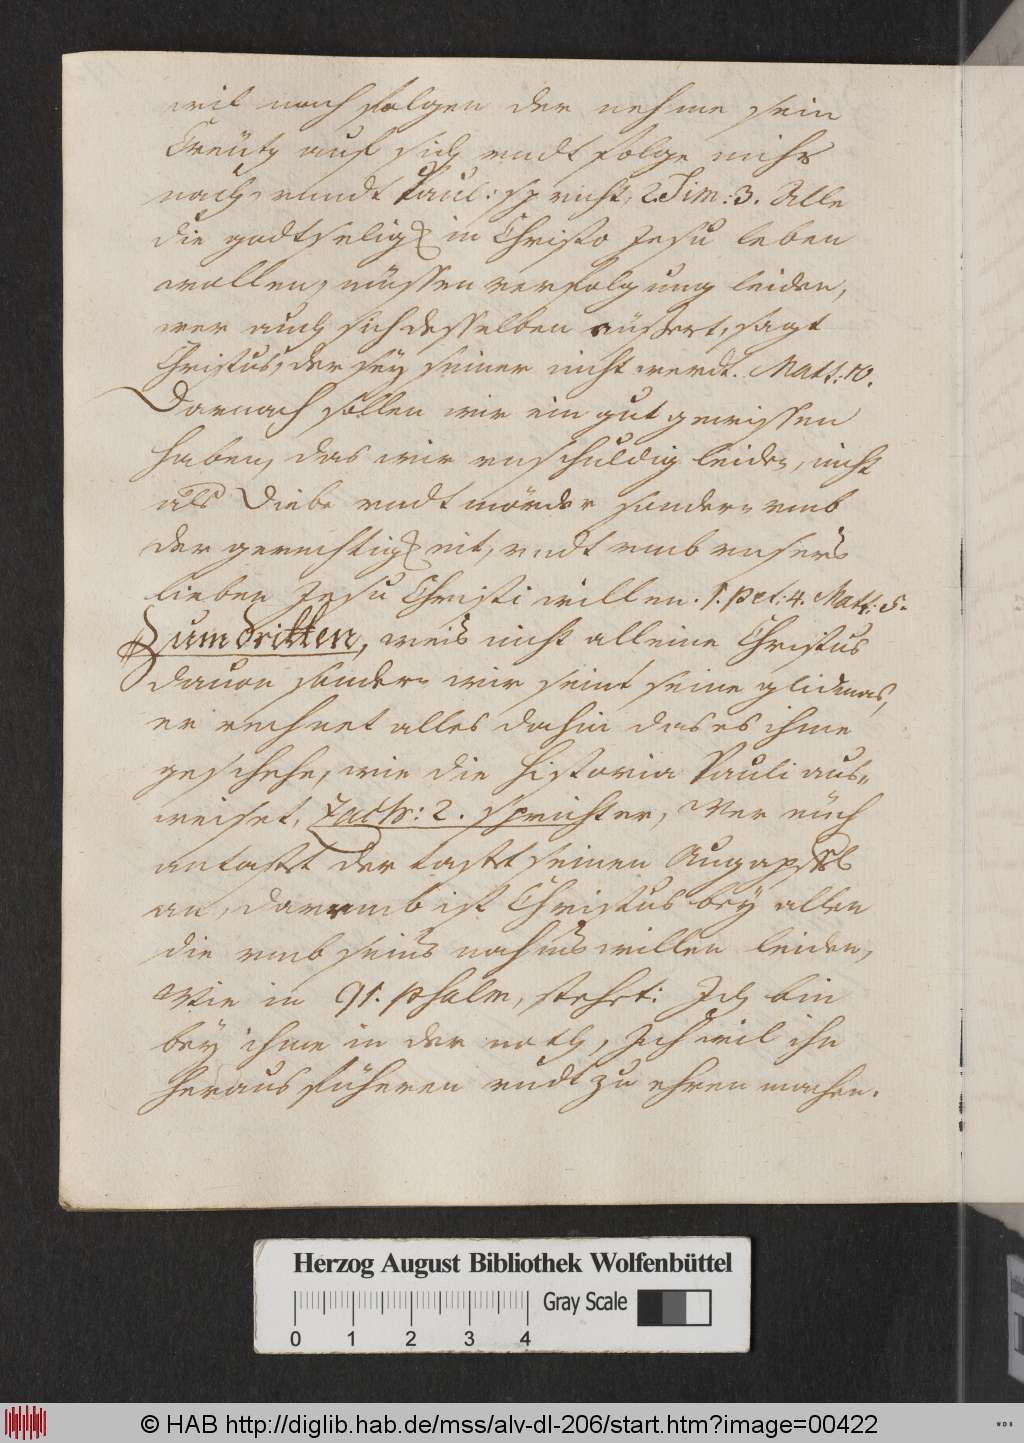 wil nach folgen der nehme sein
Creütz auf sich vndt folge mihr
nach, vnndt Paul: spricht, 2. Tim: 3. Alle
die godtselig in Christo Jesu leben
wollen, müssen verfolgung leiden,
wer auch sich desselben äusert, sagt
Christus, der seÿ seiner nicht werdt. Matt: 10.
Darnach sollen wir ein gut gewissen
haben, das wir vnschuldig leiden, nicht
als Diebe vndt mörder sondern vmb
der gerechtigkeit, vndt vmb vnsers
lieben Jesu Christi willen. 1. Pet: 4. Matt: 5.
Zum dritten, weis nicht alleine Christus
dauon sondern wir seint seine glidmas,
er rechnet alles dahin das es ihme
geschehe, wie die Historia Pauli aus=
weiset, Zach: 2. spricht er, Wer eüch
antastet der tastet seinen Augapfel
an, darumb ist Christus beÿ allen
die vmb seins nahmens willen leiden,
Wie in 91. Psalm, stehet: Ich bin
beÿ ihme in der noth, Ich wil ihn
heraus füheren vndt zu ehren machen.
Herzog August Bibliothek Wolfenbüttel
Gray Scale
0 1 2 3 4
© HAB http://diglib.hab.de/mss/alv-dl-206/start.htm?image=00422